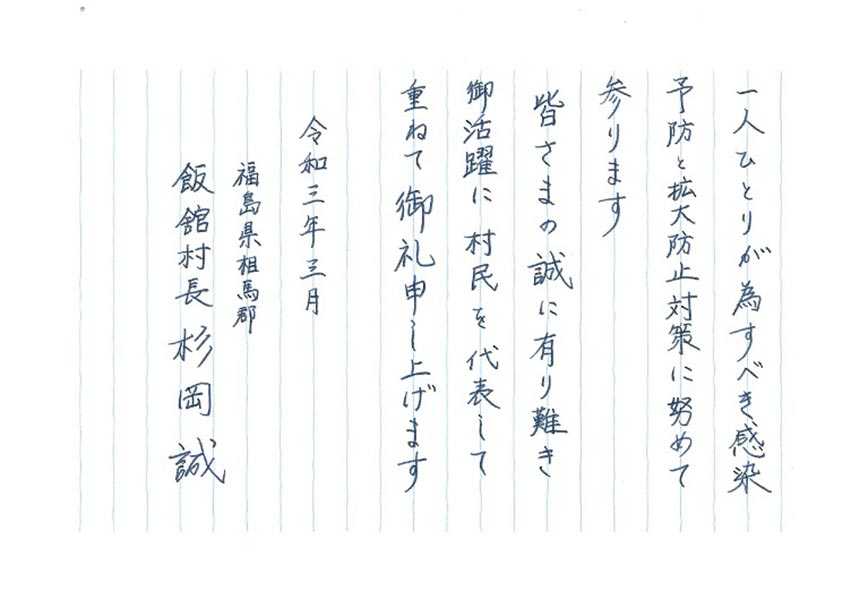 一人ひとりが為すべき感染
予防と拡大防止対策に努めて
参ります
皆さまの誠に有り難き
御活躍に村民を代表して
重ねて御礼申し上げます
令和三年三月
福島県相馬郡
飯舘村長 杉岡誠